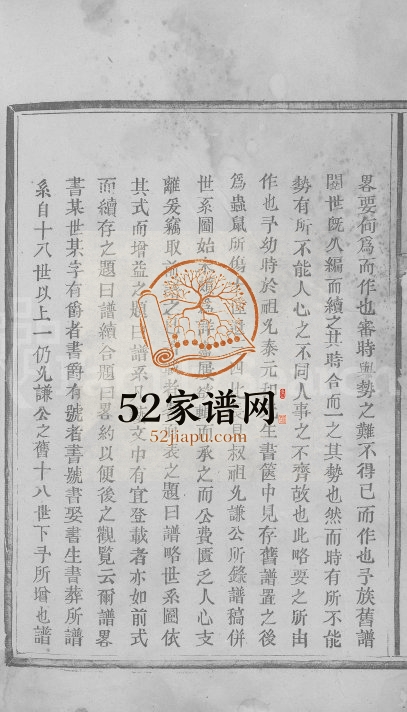 畧要何為而作也審時與勢之難不得已而作也予族舊譜
閱世既久編而續之其時合而一之其勢也然而時有所不能
勢有所不能人心之不同人事之不齊故也此略要之所由
作也予幼時於祖先泰元和生書篋中見存舊譜置之後
為蟲鼠所傷叔祖先謙公所錄譜稿併
世系圖始而承之而公費匱乏人心支
離爰竊取前表之題曰譜略世系圖依
其式而增益之題曰譜系文中有宜登載者亦如前式
而續存之題曰譜續合題曰畧約以便後之觀覽云爾譜畧
書某世某字有爵者書爵有號者書號書娶書生書葬所譜
系自十八世以上一仍先謙公之舊十八世下予所增也譜
52家谱网
52jiapu.com